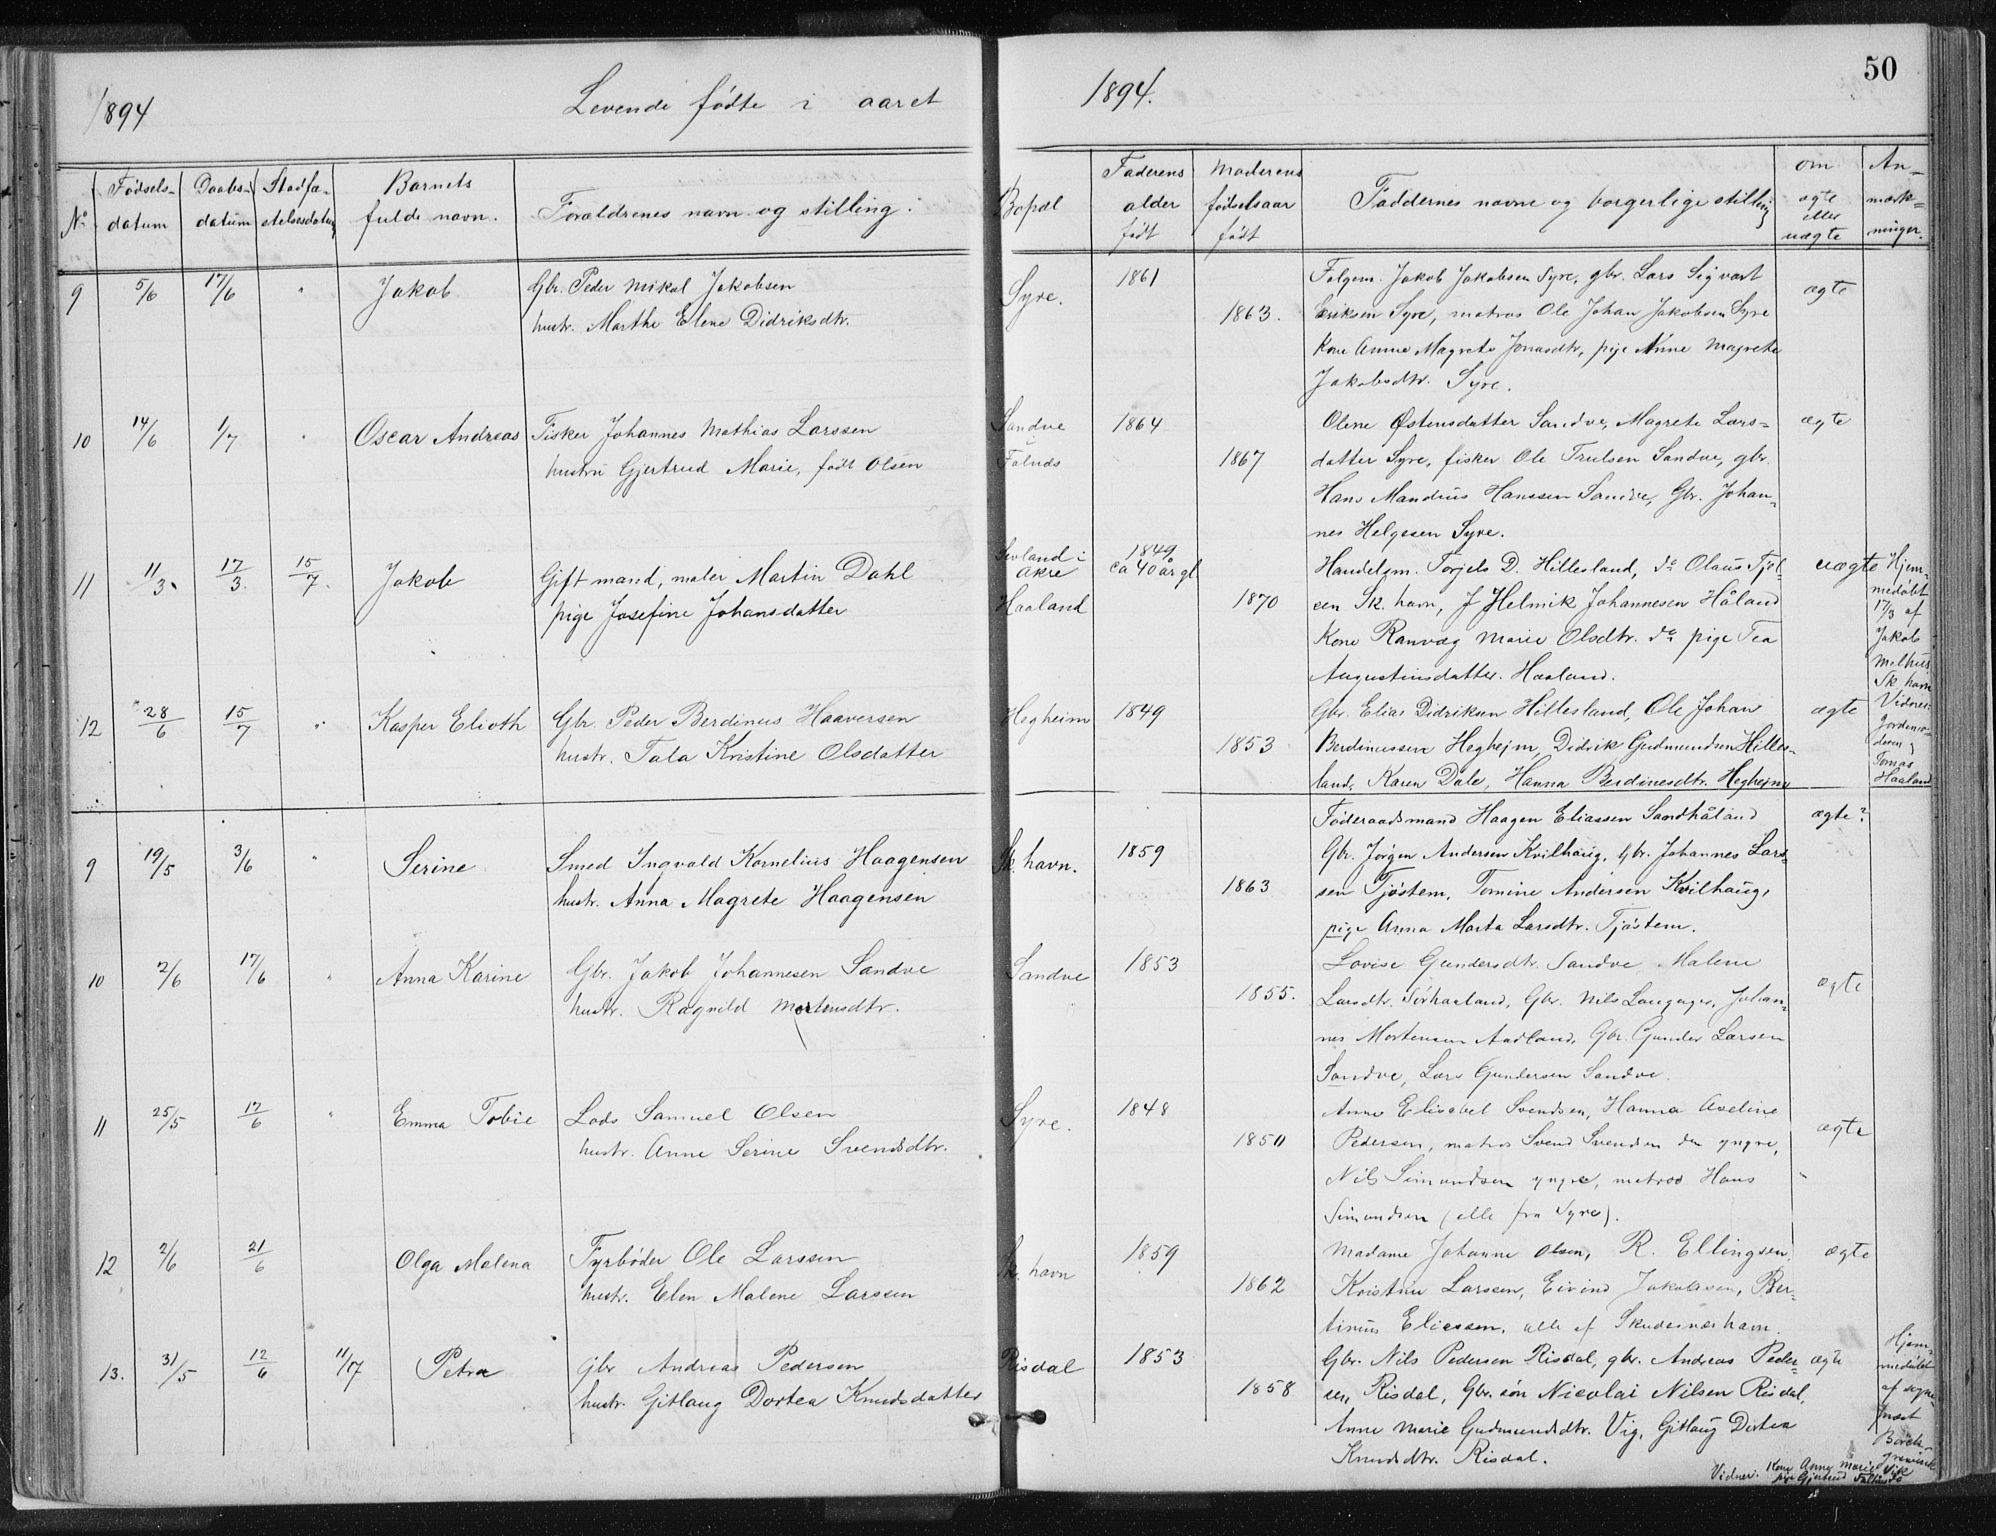 50
1894 Levende fødte i aaret 1894.
No Fødsels-datum Daabs-datum Stadfæ-stelsesdatum Barnets fulde navn. Forældrenes navn og stilling: Bopæl Faderens alder født Moderens fødselsaar født Faddernes navne og borgerlige stilling om ægte eller uægte An-mærk-ninger.
9 5/6 17/6 " Jakob Gbr. Peder Mikal Jakobsen Syre. 1861 Folgem. Jakob Jakobsen Syre, gbr. Lars Sigvart ægte
hustr. Marthe Elene Didriksdtr. 1863. Eriksen Syre, matros Ole Johan Jakobsen Syre
Kone Anne Magrete Jonasdtr, pige Anne Magrete
Jakobsdtr. Syre.
10 14/6 1/7 " Oscar Andreas Fisker Johannes Mathias Larssen Sandve 1864 Olene Østensdatter Sandve, Magrete Lars= ægte
hustru Gjertrud Marie, født Olsen Falnæs 1867 datter Syre, fisker Ole Trulsen Sandve, gbr.
Hans Mandius Hanssen Sandve, Gbr. Johan-
nes Helgesen Syre.
11 11/3. 17/3. 15/7. Jakob Gift mand, maler Martin Dahl Sevland i Akre 1849 ca 40 år gl Handelsm. Torjels D. Hillesland, do Olaus Tjøl- uægte Hjem-
pige Josefine Johansdatter Haaland 1870 sen Sk. havn, J Helmik Johannesen Håland medøbt
Kone Ranvæg Marie Olsdtr. do pige Tea 17/3 af Jakob
Augustinsdatter. Haaland. Melhus Sk havn
12 28/6 15/7 " Kasper Elioth Gbr. Peder Berdinus Haaversen Hegheim 1849 Gbr. Elias Didriksen Hillesland, Ole Johan ægte Vidner:
hustr. Tala Kristine Olsdatter 1853 Berdinussen Heghejm, Didrik Gudmundsen Hilles- Jordemo-deren,
land, Karen Dale, Hanna Berdinesdtr. Heghejm Tomas Haaland
Føderaadsmand Haagen Eliassen Sandhåland ægte?
9 19/5 3/6 " Serine Smed Ingvald Kornelius Haagensen Sk. havn. 1859 Gbr. Jørgen Andersen Kvilhaug, Gbr. Johannes Lars-
hustr. Anna Magrete Haagensen 1863 sen Tjøstem, Tomine Andersen Kvilhaug,
pige Anna Marta Larsdtr. Tjøstem.
10 2/6 17/6 " Anna Karine Gbr. Jakob Johannesen Sandve Sandve 1853 Lovise Gundersdtr. Sandve, Malene ægte
hustr. Ragnild Mortensdtr. 1855. Larsdtr. Sørhaaland, Gbr. Nils Langager, Johan-
nes Mortensen Aadland, Gbr. Gunder Larsen
Sandve, Lars Gundersen Sandve.
11 25/5 17/6 " Emma Tobie Lods Samuel Olsen Syre. 1848 Anne Elisabet Svendsen, Hanna Aseline ægte
hustr. Anne Serine Svendsdtr. 1850 Pedersen, matros Svend Svendsen den yngre,
Nils Simundsen yngre, matros Hans
Simundsen (alle fra Syre).
12 2/6 21/6 Olga Malena Fyrbøder Ole Larssen Sk. havn 1859 Madame Johanne Olsen, R. Ellingsen, ægte
hustr. Elen Malene Larssen 1862 Kristine Larssen, Eivind Jakobsen, Ber-
tinius Eliassen, alle af Skudesneshavn.
13. 31/5 12/6 11/17 Petra Gbr Andreas Pedersen Risdal 1853 Gbr. Nils Pedersen Risdal, gbr. Andreas Peder- ægte Hjem-
hustr. Gitlaug Dortea Knudsdatter 1858 sen, Risdal, Gbr. søn Nicolai Nilsen Risdal, medøbt
Anne Marie Gudmundsdtr. Vig, Gitlaug Dortea af sogne-
Knudsdtr. Risdal. præst
Vidner: Kone Anne Marie Vik
pige Gjertrud